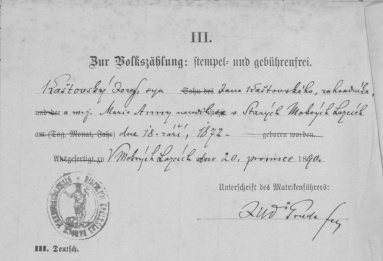 III.
Zur Volkszählung: stempel- und gebührenfrei.
Kaštovský Josef, syn Sohn des Jana Kaštovského, zahradníka,
und der a mž. Marie Anny v Starých Mokrých Lazcích
am (Tag, Monat, Jahr) dne 18. září, 1872 geboren worden.
Ausgefertigt zu V Mokrých Lazcích dne 20. prosince 1890.
Unterschrift des Matrikenführers:
III. Deutsch.